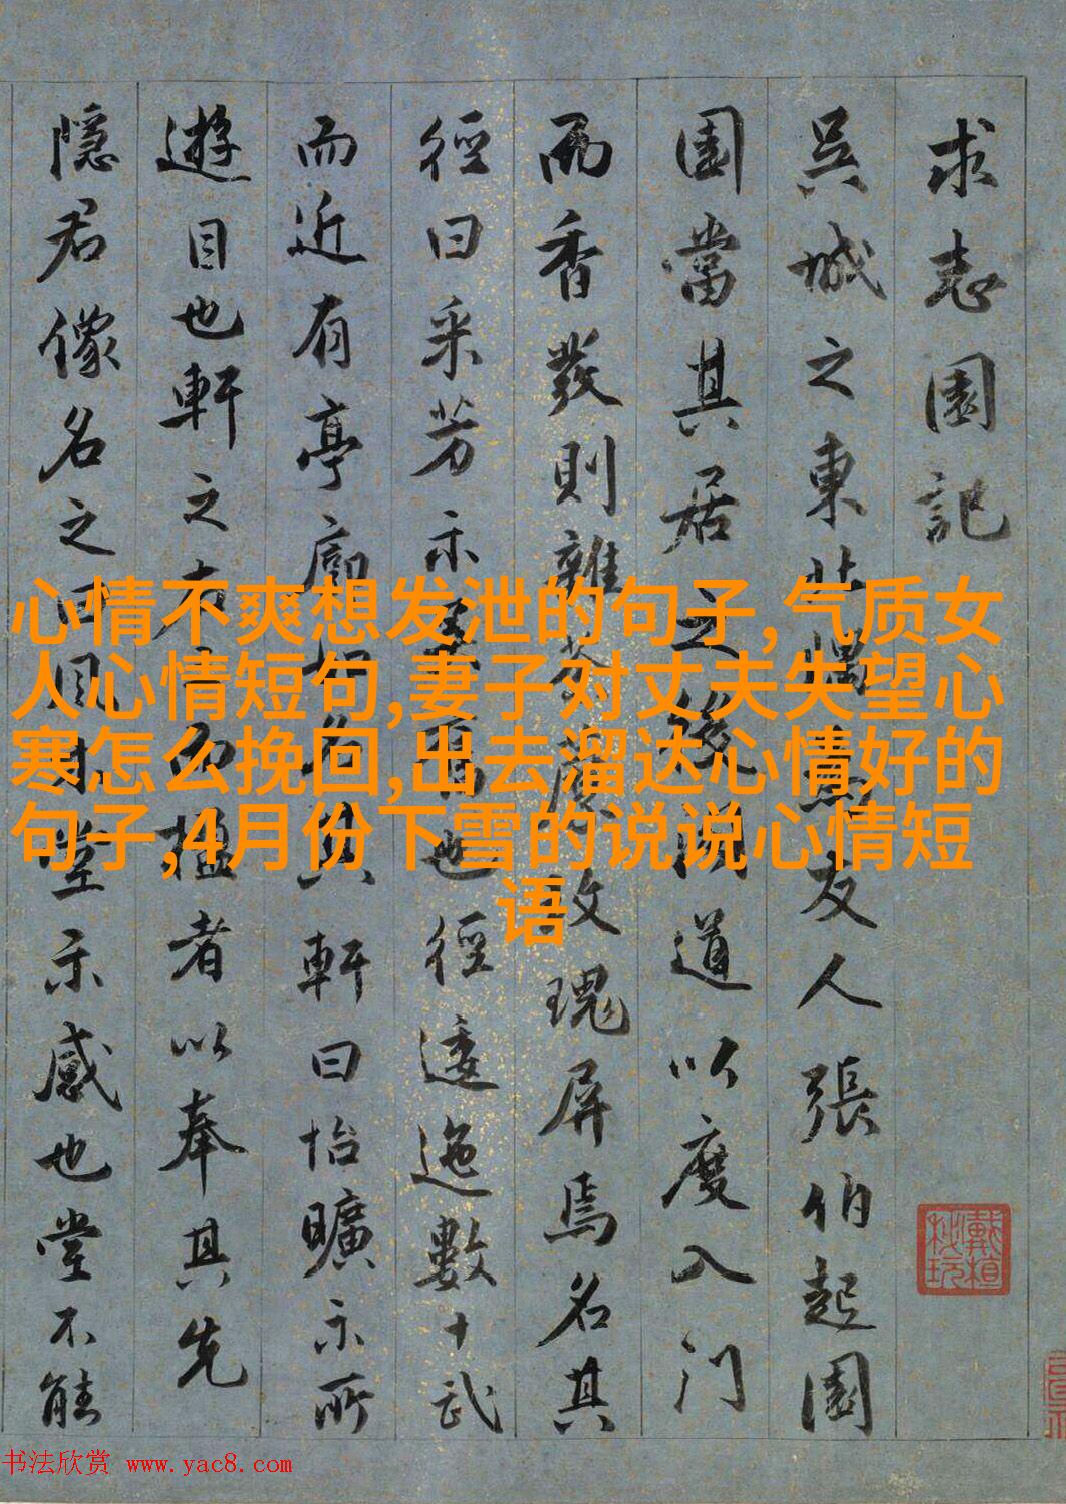 求志園記
吳城之東北隅為友人張伯起園
園當其居之後閒道以度入門
而香發則雜玫瑰屏焉名其
徑曰采芳示也徑逶迤數十武
而近有亭廊如名其軒曰怡曠示所
遊目也軒之右而楹者以奉其先
隱君像名之曰風堂示感也堂不能
心情不爽想发泄的句子,气质女
人心情短句,妻子对丈夫失望心
寒怎么挽回,出去溜达心情好的
句子,4月份下雪的说说心情短
语
书法欣赏 www.yac8.com